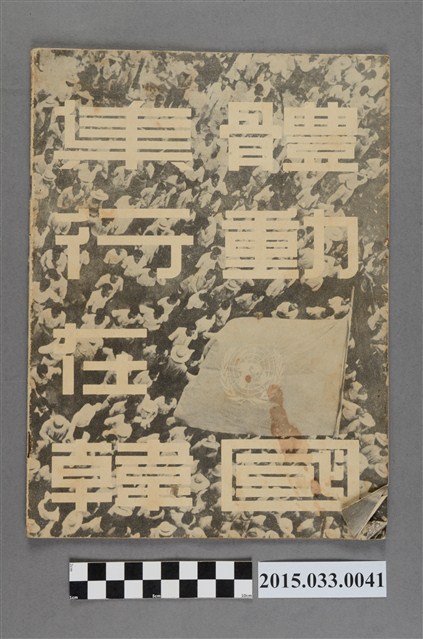 集體
行動
在
韓國
2015.033.0041